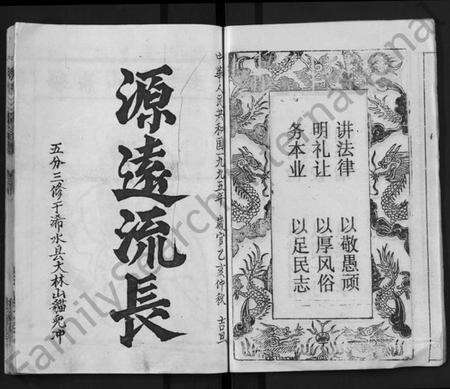 讲法律 以敬愚顽
明礼让 以厚风俗
务本业 以足民志
中华人民共和国一九九五年 岁官乙亥仲秋 吉旦
源遠流長
五分三修于浠水县大林山猫儿冲
FamilySearch International